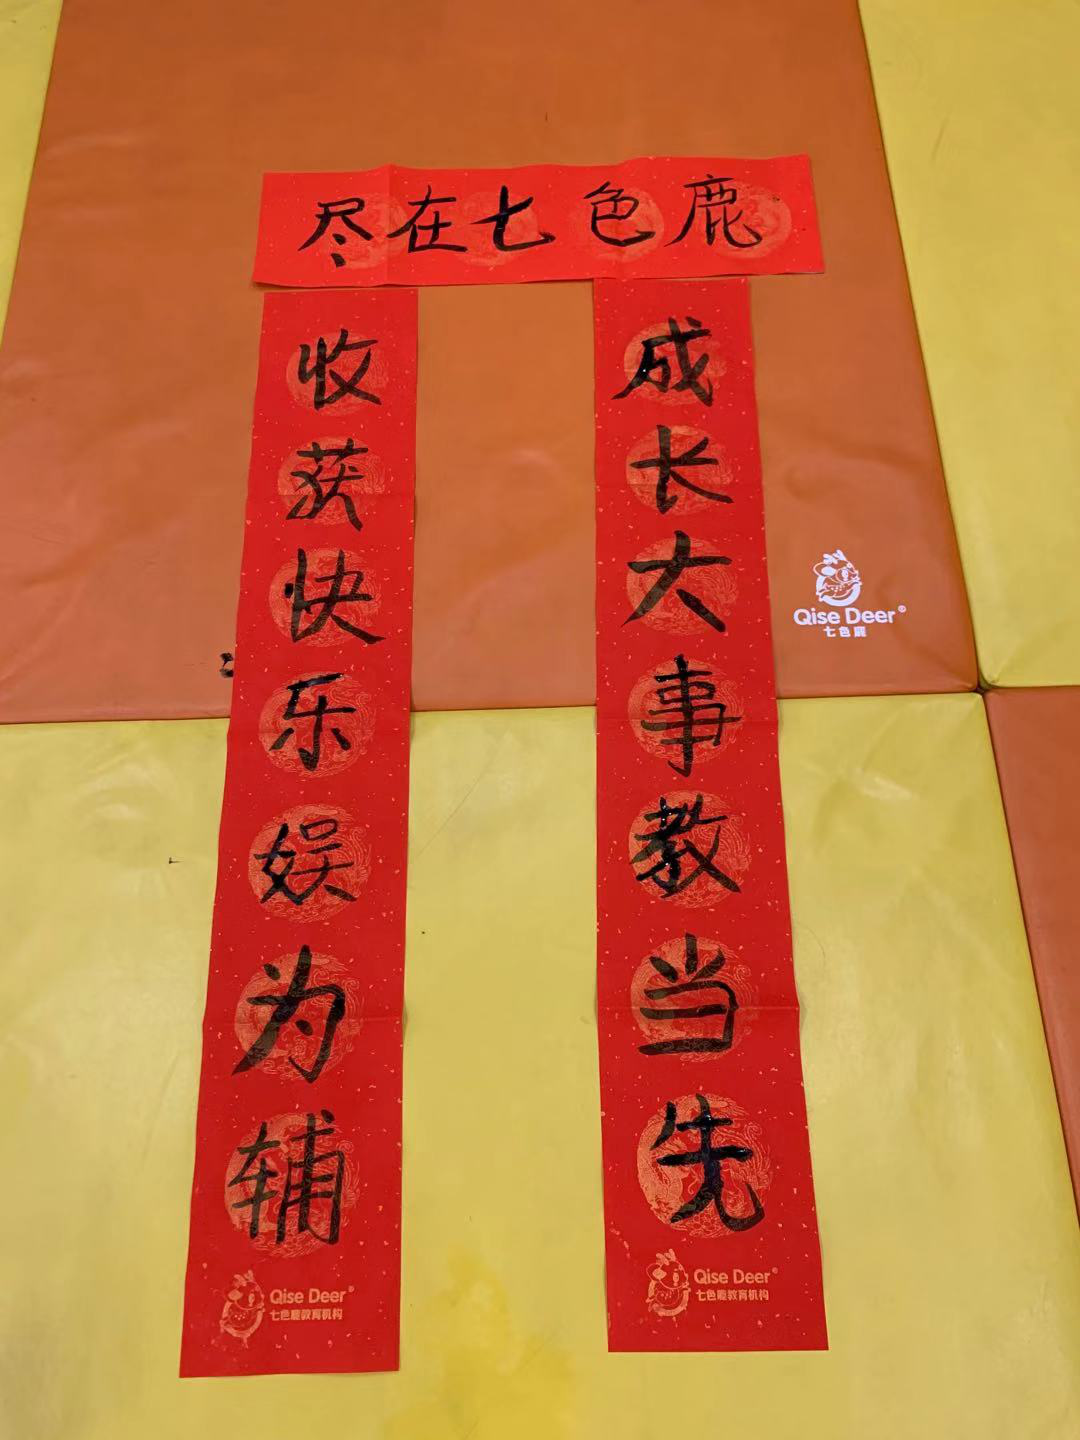 尽在七色鹿
成长大事教当先
收获快乐娱为辅
Qise Deer®
七色鹿
Qise Deer®
七色鹿教育机构
Qise Deer®
七色鹿教育机构